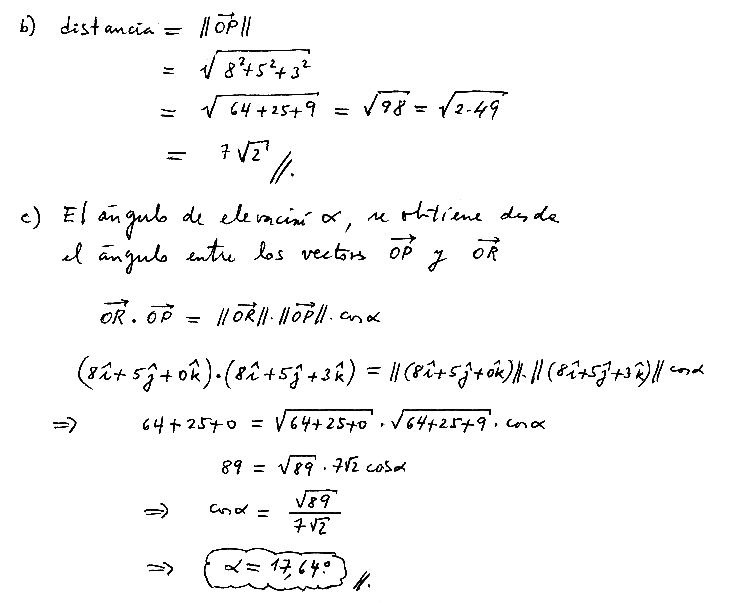 b) distancia = ||OP⃗||
= √(8²+5²+3²)
= √(64+25+9) = √98 = √(2·49)
= 7√2 //.
c) El ángulo de elevación α, se obtiene desde
el ángulo entre los vectores OP⃗ y OR⃗
OR⃗ · OP⃗ = ||OR⃗||·||OP⃗||·cos α
(8î+5ĵ+0k̂)·(8î+5ĵ+3k̂) = ||(8î+5ĵ+0k̂)||·||(8î+5ĵ+3k̂)|| cos α
⇒ 64+25+0 = √(64+25+0) · √(64+25+9) · cos α
89 = √89 · 7√2 cos α
⇒ cos α = √89 / 7√2
⇒ α = 17,64° //.